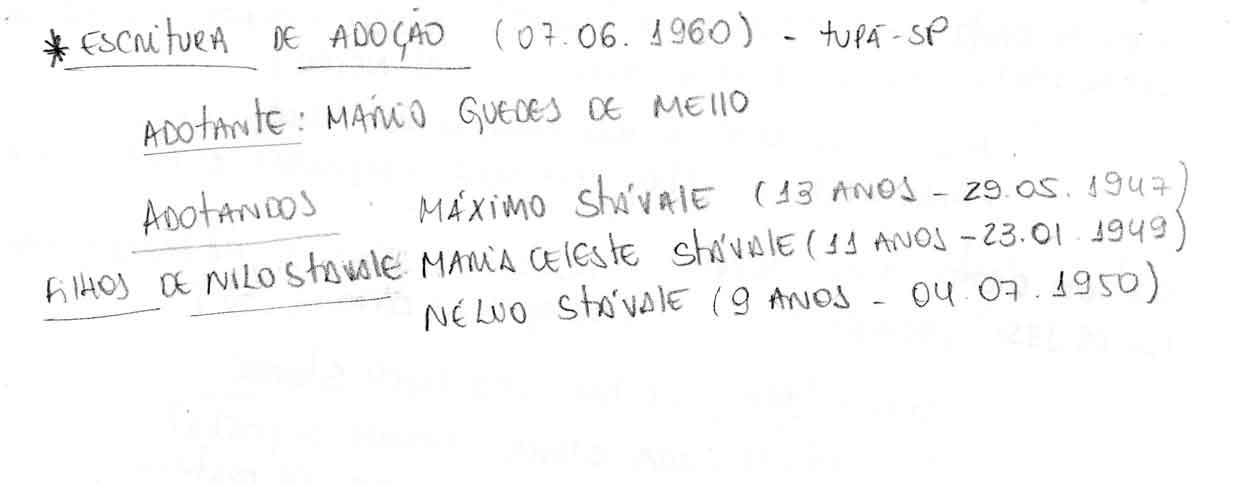 * ESCRITURA DE ADOÇÃO (07.06.1960) - TUPÃ-SP
ADOTANTE: MÁRIO GUEDES DE MELLO
ADOTANDOS MÁXIMO STÁVALE (13 ANOS - 29.05.1947)
FILHOS DE NILO STAVALE MARIA CELESTE STÁVALE (11 ANOS - 23.01.1949)
NÉLVO STÁVALE (9 ANOS - 04.07.1950)